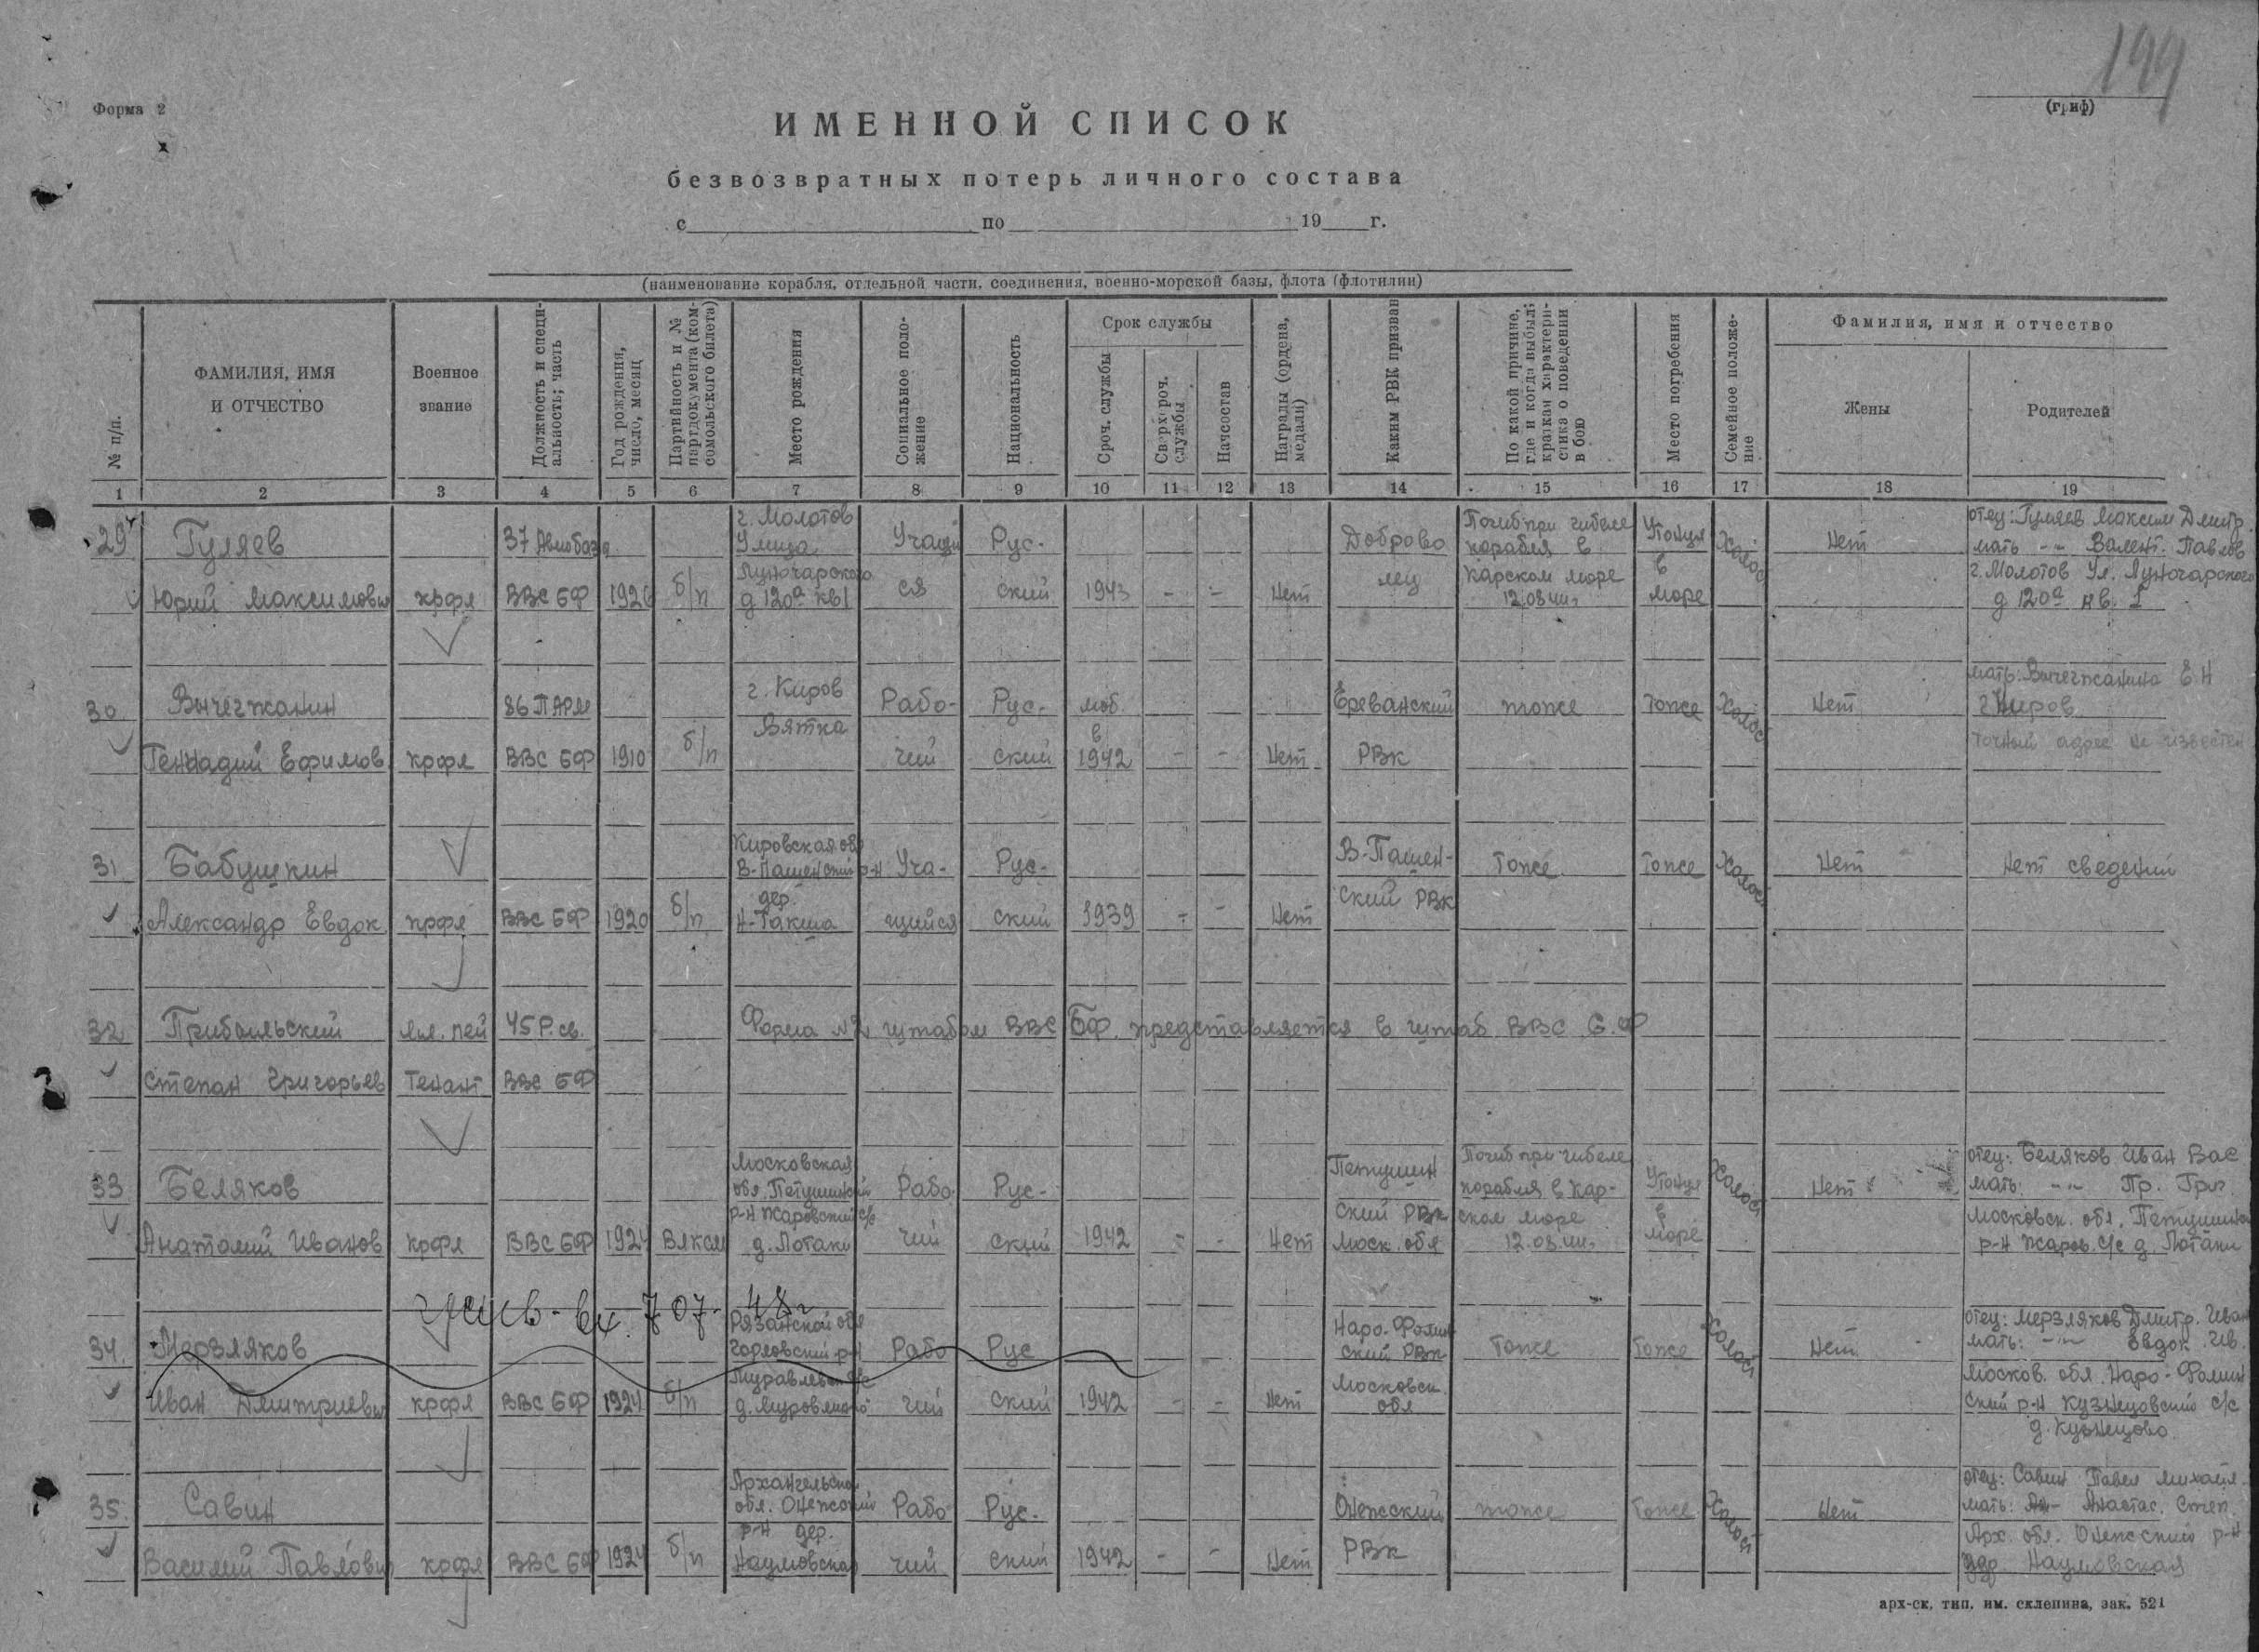 199
Форма 2
(гриф)
ИМЕННОЙ СПИСОК
безвозвратных потерь личного состава
с по 19 г.
(наименование корабля, отдельной части, соединения, военно-морской базы, флота (флотилии)
№ п/п.
ФАМИЛИЯ, ИМЯ
И ОТЧЕСТВО
Военное
звание
Должность и специ-
альность; часть
Год рождения,
число, месяц
Партийность и №
партдокумента (ком-
сомольского билета)
Место рождения
Социальное поло-
жение
Национальность
Срок службы
Сроч. службы
Сверхсроч.
службы
Начсостав
Награды (ордена,
медали)
Каким РВК призван
По какой причине,
где и когда выбыл;
краткая характери-
стика о поведении
в бою
Место погребения
Семейное положе-
ние
Фамилия, имя и отчество
Жены
Родителей
1 2 3 4 5 6 7 8 9 10 11 12 13 14 15 16 17 18 19
29 Гуляев
Юрий Максимович
крфл
37 Авиобаза
ВВС БФ
1926
б/п
г. Молотов
Улица
Луночарского
д 120а кв1
Учащи
ся
Рус-
ский
1943
- -
Нет
Доброво
лец
Погиб при гибеле
корабля в
карском море
12.08.44г
Утонул
в
море
Холос
Нет
отец: Гуляев Максим Дмитр.
мать -"- Валент. Павлов
г. Молотов Ул. Луночарского
д 120а кв. 1
30 Вычегжанин
Геннадий Ефимов.
крфл
86 ПАРМ
ВВС БФ
1910
б/п
г. Киров
Вятка
Рабо-
чий
Рус-
ский
моб.
в
1942
- -
Нет
Ереванский
РВК
тоже
Тоже
Холос
Нет
мать: Вычегжанина Е Н
г. Киров
Точный адрес не известен
31 Бабушкин
Александр Евдок.
крфл
ВВС БФ
1920
б/п
Кировская обл
В-Пашенский р-н
дер.
Н-Такша
Уча-
щийся
Рус-
ский
1939
- -
Нет
В-Пашен-
ский РВК
Тоже
Тоже
Холос
Нет
Нет сведений
32 Прибыльский
Степан Григорьев
Мл. лей
тенант
45 Р.св.
ВВС БФ
Форма №2 штабом ВВС БФ. представляется в штаб ВВС Б.Ф
33 Беляков
Анатолий Иванов
крфл
ВВС БФ
1924
Влксм
Московская
обл. Петушинский
р-н Жаровский с/с
д. Лотаки
Рабо-
чий
Рус-
ский
1942
- -
Нет
Петушин
ский РВК
Моск. обл
Погиб при гибеле
корабля в Кар-
ском море
12.08.44г
Утонул
в
море
Холост
Нет
отец: Беляков Иван Вас
мать: -"- Пр. Гр.
Московск. обл. Петушинск
р-н Жаров. с/с д. Лотаки
- вх. 707- 48г
34. Мерзляков
Иван Дмитриевич
крфл
ВВС БФ
1924
б/п
Рязанской обл
Горловский р-н
Муравлевск с/с
Рабо
чий
Рус
ский
1942
- -
Нет
Наро-Фомин
ский РВК
Московск.
обл
Тоже
Тоже
Холост
Нет
отец: Мерзляков Дмитр. Иван
мать: -"- Евдок. Ив.
Москов. обл. Наро-Фомин
ский р-н Кузнецовский с/с
д. Кузнецово
35. Савин
Василий Павлович
крфл
ВВС БФ
1924
б/п
Архангельская
обл. Онежский
р-н дер.
Наумовская
Рабо-
чий
Рус-
ский
1942
- -
Нет
Онежский
РВК
тоже
Тоже
Холост
Нет
отец: Савин Павел Михайл.
мать: Анастас. Степ.
Арх. обл. Онежский р-н
дер. Наумовская
арх-ск. тип. им. склепина, зак. 521